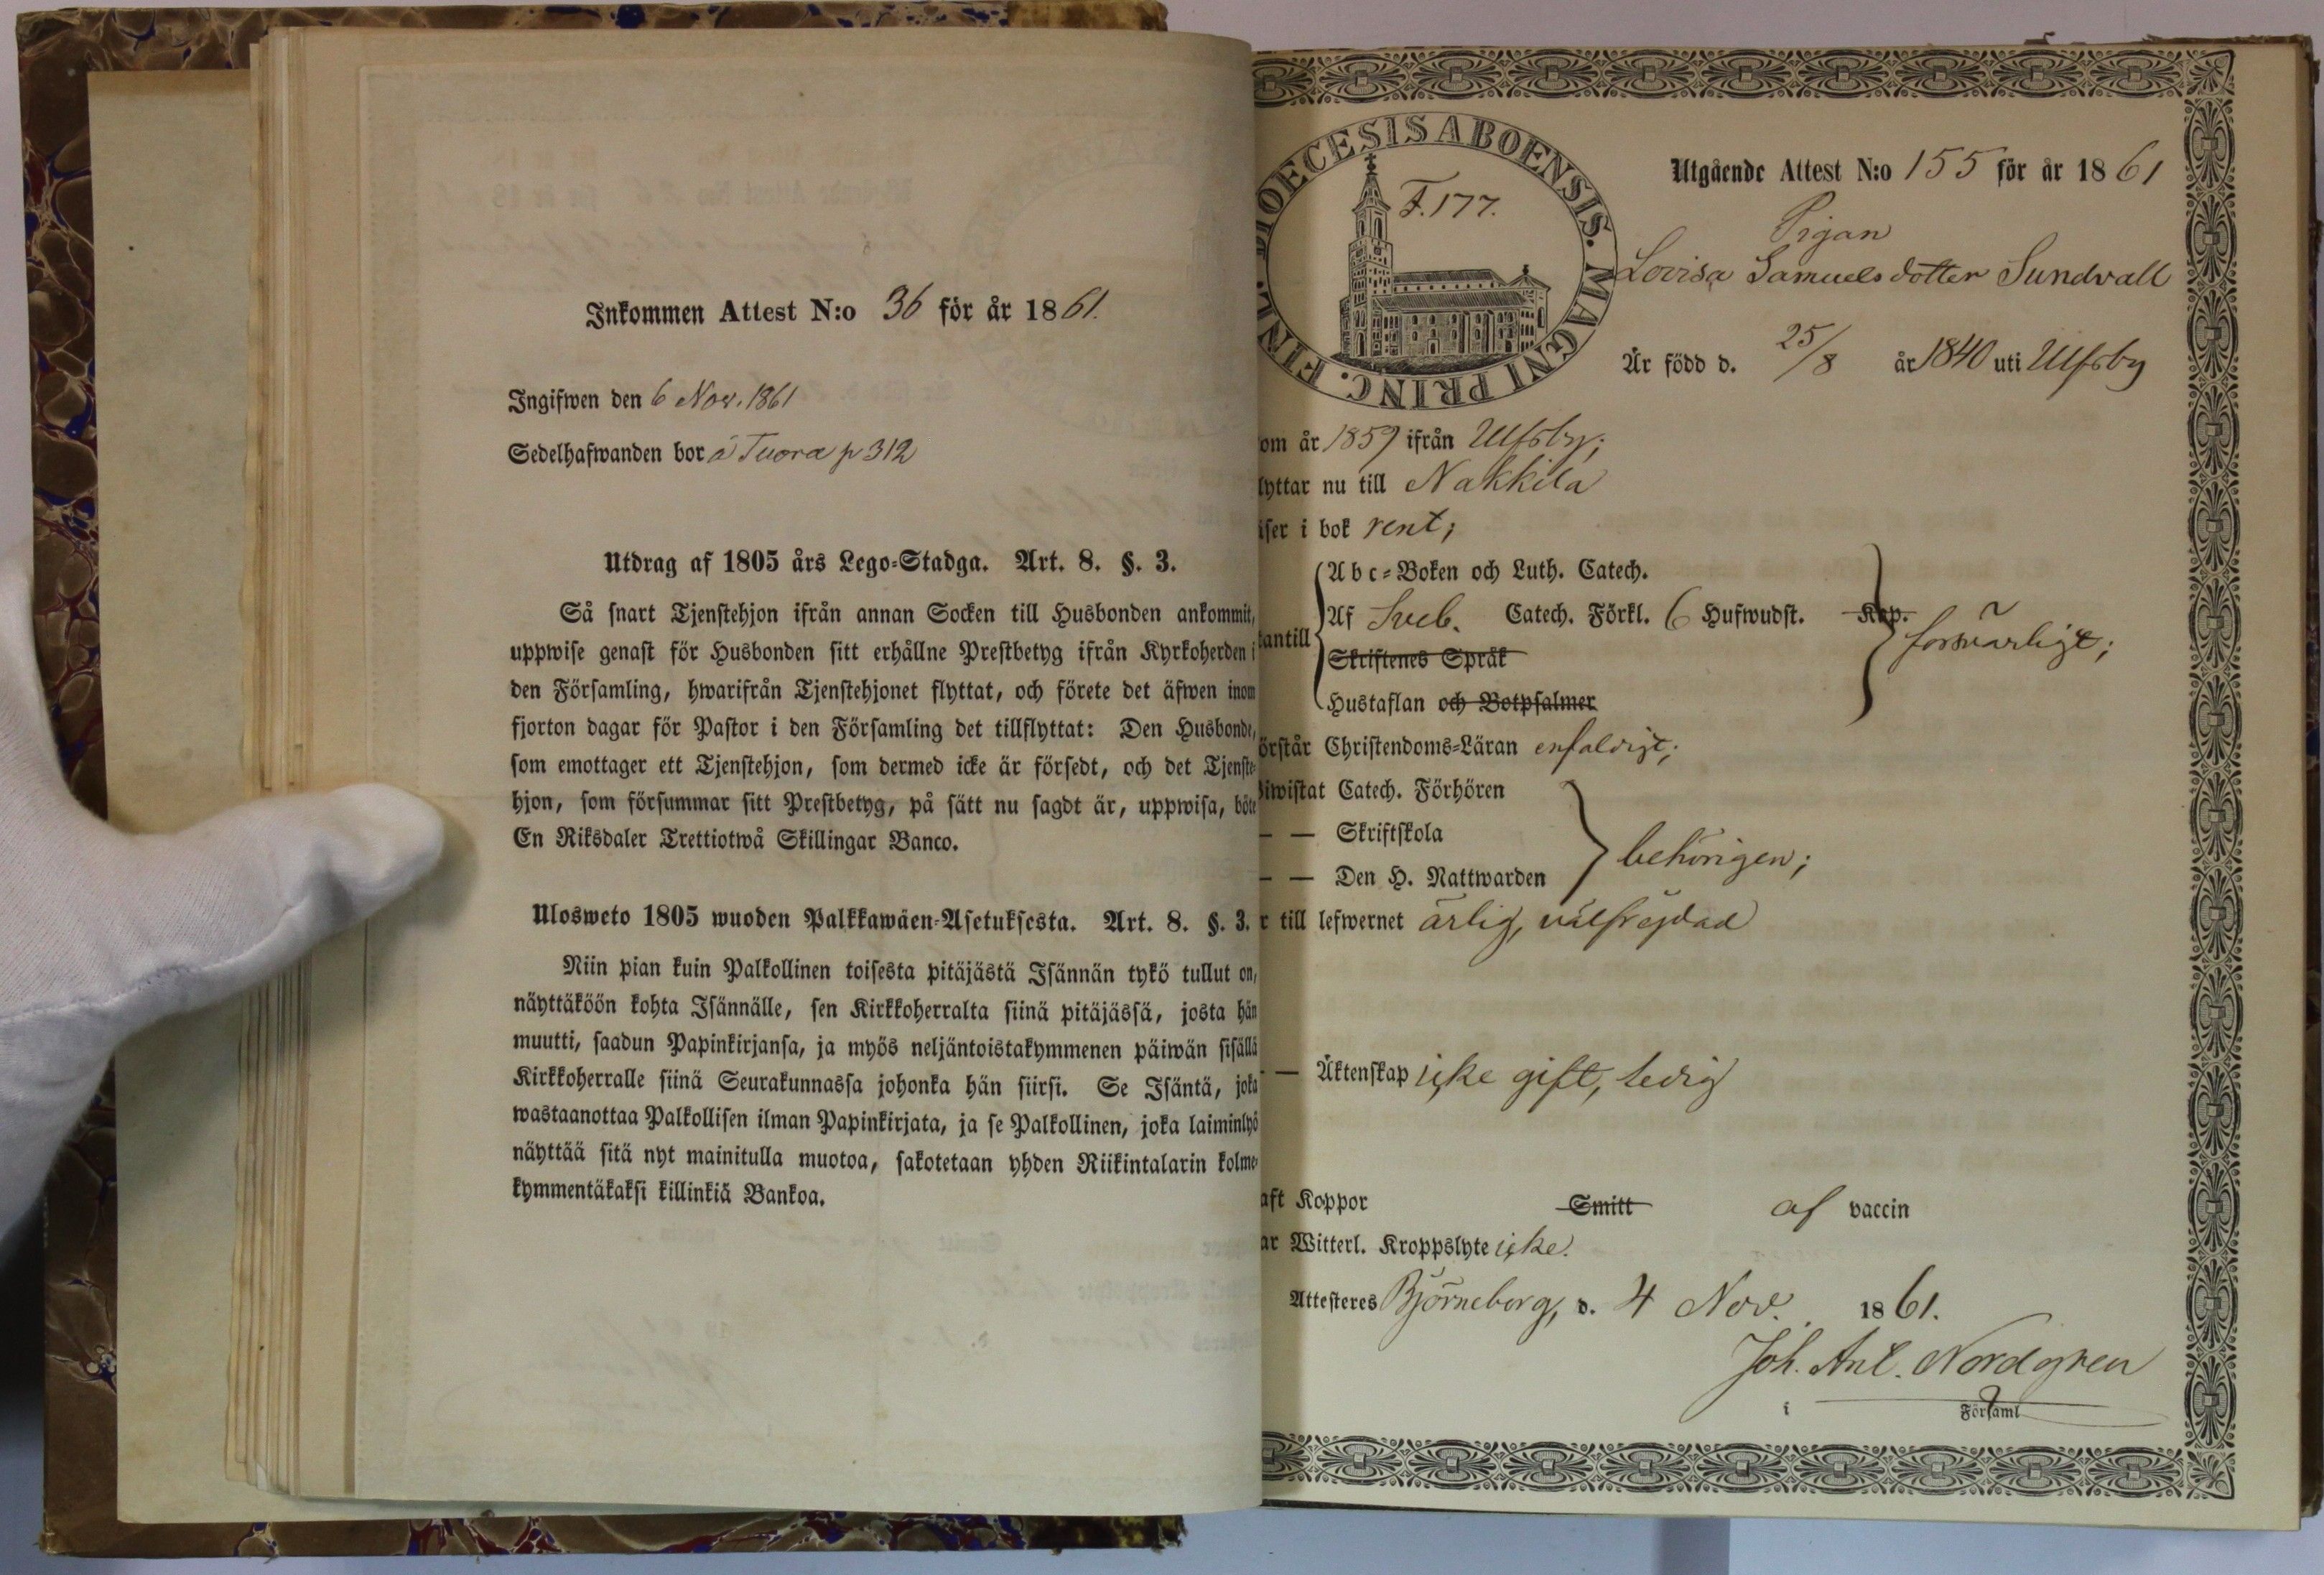 Inkommen Attest N:o 36 för år 1861.
Ingifwen den 6 Nov. 1861
Sedelhafwanden bor å Tuora p 312
Utdrag af 1805 års Lego-Stadga. Art. 8. §. 3.
Så snart Tjenstehjon ifrån annan Socken till Husbonden ankommit,
uppwise genast för Husbonden sitt erhållne Prestbetyg ifrån Kyrkoherden i
den Församling, hwarifrån Tjenstehjonet flyttat, och förete det äfwen inom
fjorton dagar för Pastor i den Församling det tillflyttat: Den Husbonde,
som emottager ett Tjenstehjon, som dermed icke är försedt, och det Tjenste-
hjon, som försummar sitt Prestbetyg, på sätt nu sagdt är, uppwisa, böte
En Riksdaler Trettiotwå Skillingar Banco.
Ulosweto 1805 wuoden Palkkawäen-Asetuksesta. Art. 8. §. 3.
Niin pian kuin Palkollinen toisesta pitäjästä Isännän tykö tullut on,
näyttäköön kohta Isännälle, sen Kirkkoherralta siinä pitäjässä, josta hän
muutti, saadun Papinkirjansa, ja myös neljäntoistakymmenen päiwän sisällä
Kirkkoherralle siinä Seurakunnassa johonka hän siirsi. Se Isäntä, joka
wastaanottaa Palkollisen ilman Papinkirjata, ja se Palkollinen, joka laiminlyö
näyttää sitä nyt mainitulla muotoa, sakotetaan yhden Riikintalarin kolme-
kymmentäkaksi killinkiä Bankoa.
DIOECESIS ABOENSIS. MAGNI PRINC. FINL.
F. 177.
Utgående Attest N:o 155 för år 1861
Pigan
Lovisa Samuelsdotter Sundvall
Är född d. 25/8 år 1840 uti Ulfsby
om år 1859 ifrån Ulfsby;
lyttar nu till Nakkila
äser i bok rent;
Abc-Boken och Luth. Catech.
Af Sveb. Catech. Förkl. 6 Hufwudst. Kap.
antill
försvarligt;
Skriftenes Språk
Hustaflan och Botpsalmer
örstår Christendoms-Läran enfaldigt;
iwistat Catech. Förhören
— — Skriftskola
behörigen;
— — Den H. Nattwarden
r till lefwernet ärlig, välfrejdad
— — Äktenskap icke gift, ledig
aft Koppor Smitt af vaccin
ar Witterl. Kroppslyte icke.
Attesteres Björneborg, d. 4 Nov. 1861.
Joh. Ant. Nordgren
i Församl